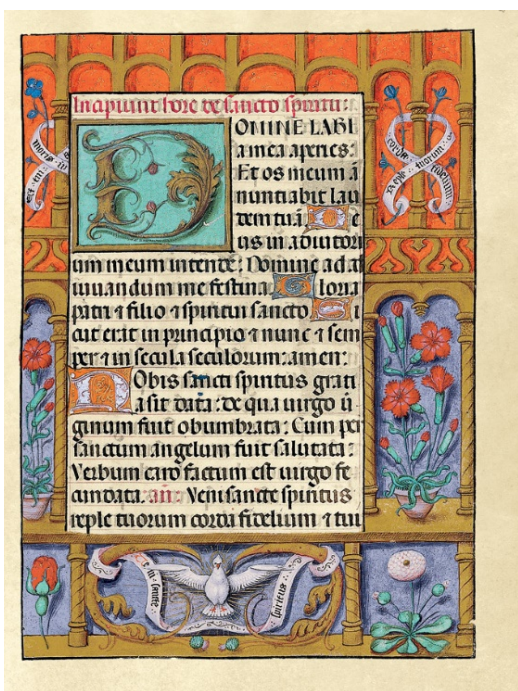 Incipiunt hore de sancto spiritu:
DOMINE LABI
a mea aperies:
Et os meum ā
nuntiabit lau
dem tuā: De
us in adiutori
um meum intende: Domine ad ad
iuuandum me festina: Gloria
patri ⁊ filio ⁊ spiritui sancto: Si
cut erat in principio ⁊ nunc ⁊ sem
per ⁊ in secula seculorum: amen:
Nobis sancti spiritus grati
a sit data: de qua uirgo ui
ginum fuit obumbrata: Cum per
sanctum angelum fuit salutata:
Verbum caro factum est uirgo fe
cundata. añ Veni sancte spiritus
reple tuorum corda fidelium ⁊ tui
Reple tuorum
corda fidelium
ni sancte
spiritus